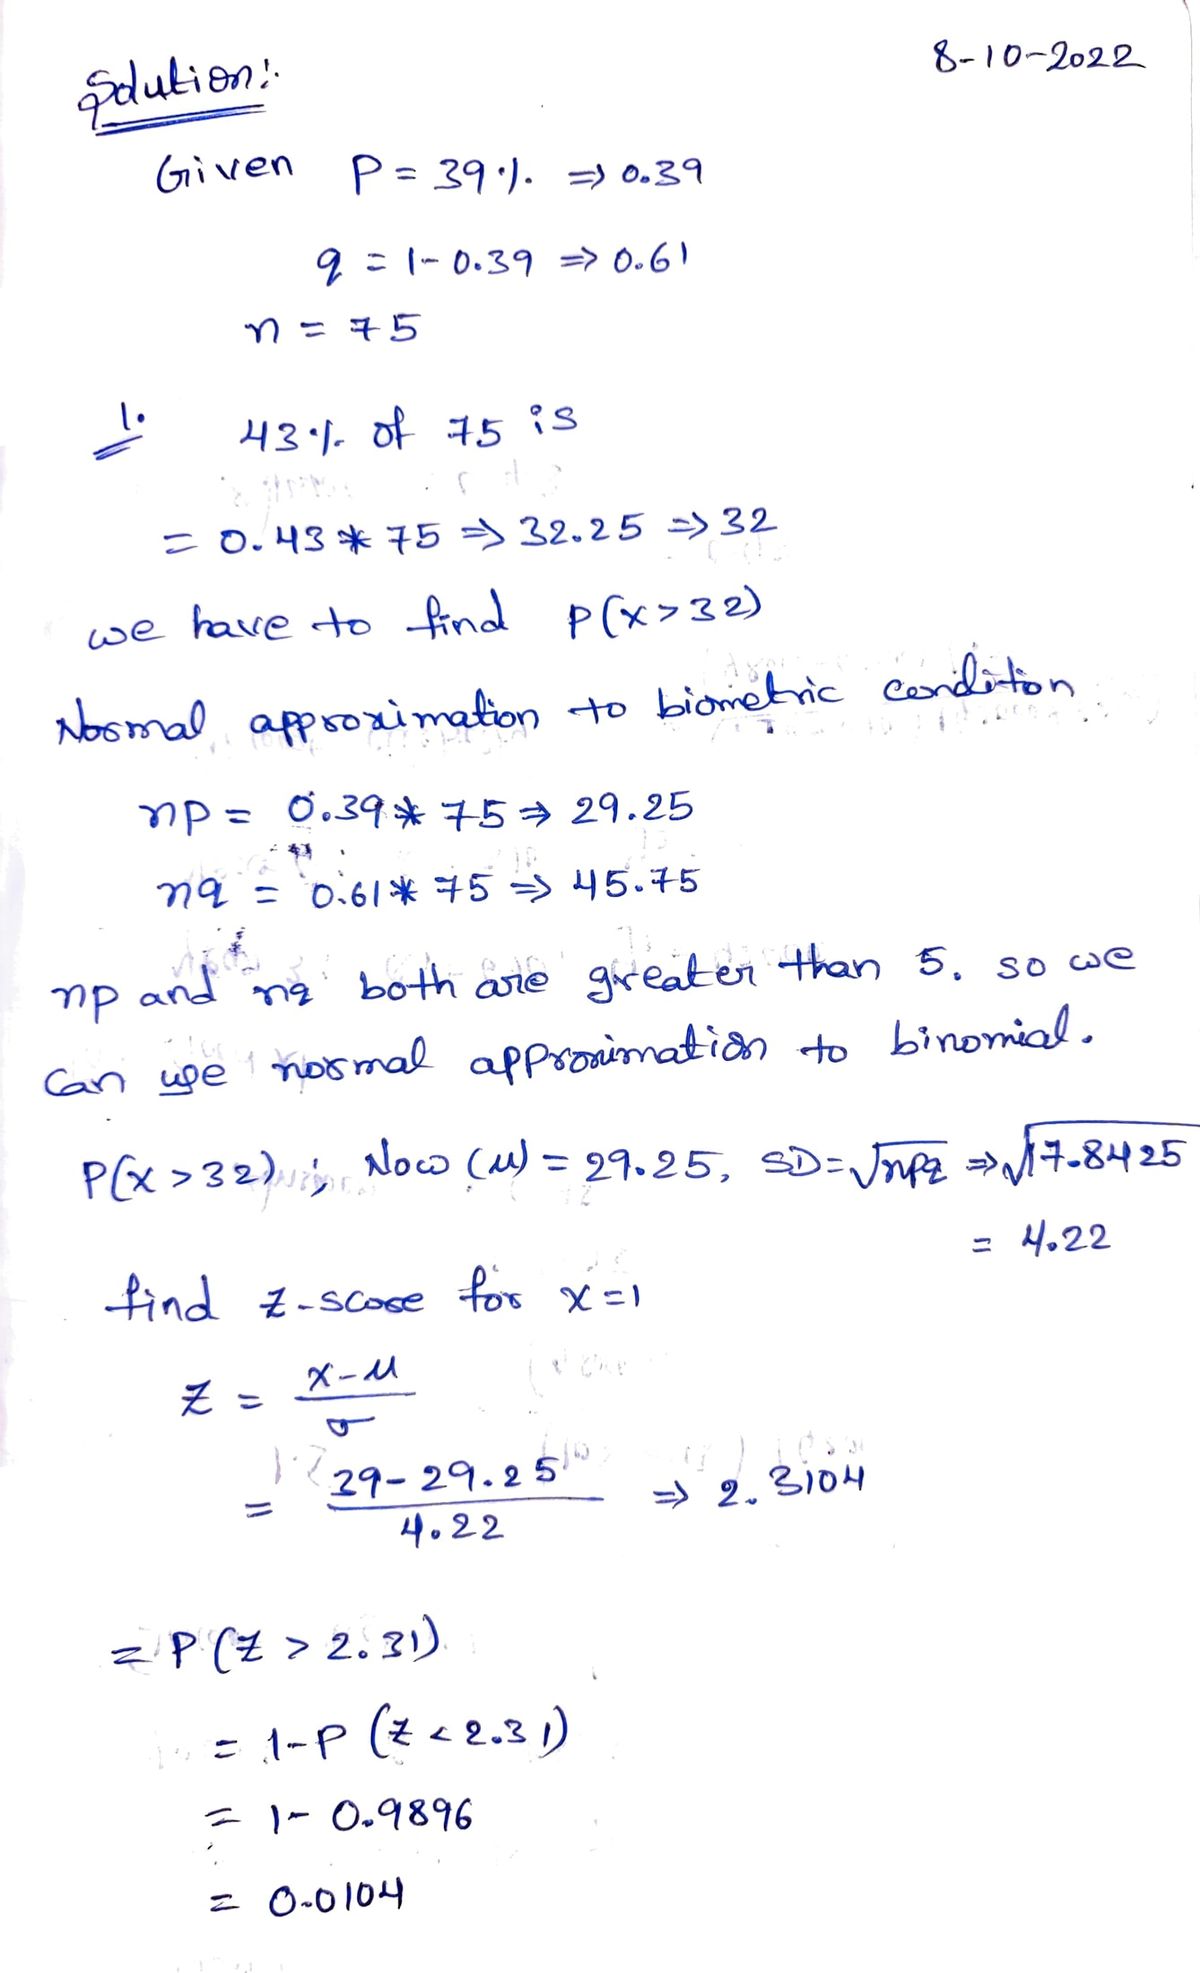 8-10-2022
Solution:-
Given P = 39% => 0.39
q = 1-0.39 => 0.61
n = 75
1. 43% of 75 is
= 0.43 * 75 => 32.25 => 32
we have to find P(x>32)
Normal approximation to biometric condition
np = 0.39 * 75 => 29.25
nq = 0.61 * 75 => 45.75
np and nq both are greater than 5. so we
can use normal approximation to binomial.
P(x>32) ; Now (μ) = 29.25, SD = √npq => √17.8425
= 4.22
find z-score for x=1
Z = x-μ / σ
= 39-29.25 / 4.22 => 2.3104
= P(Z > 2.31)
= 1-P (Z < 2.31)
= 1- 0.9896
= 0.0104